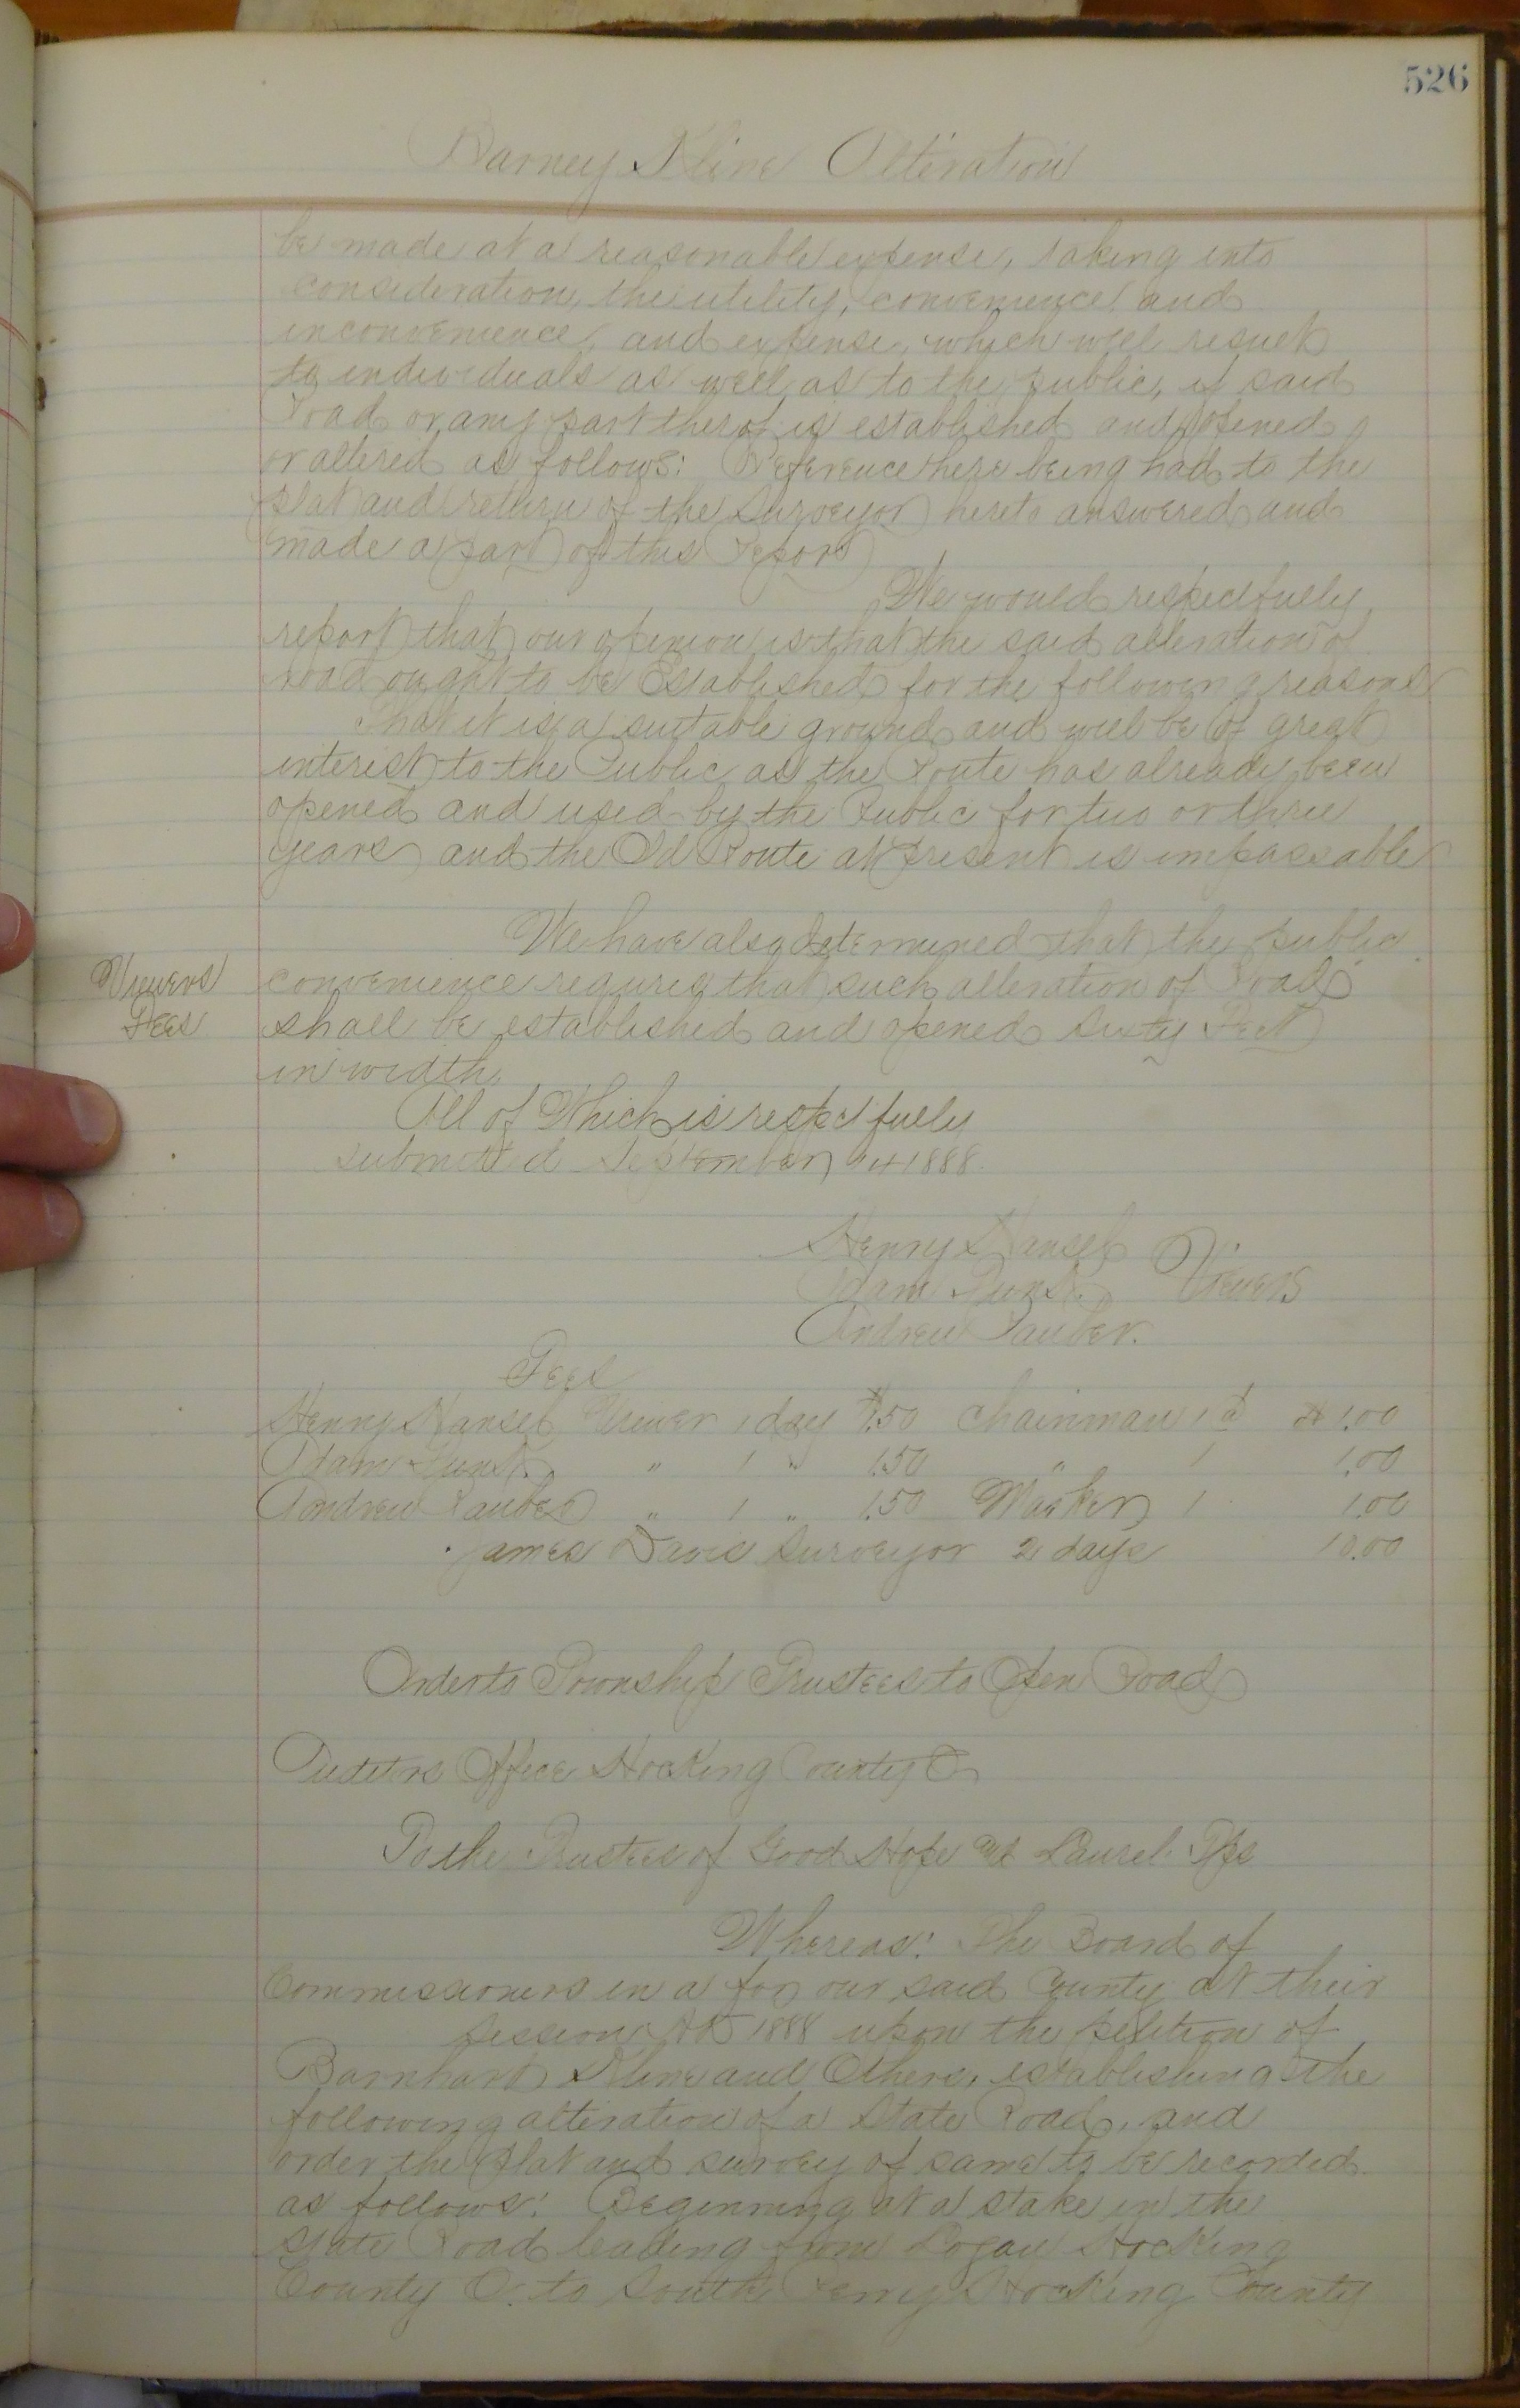 526
Barney Kline Alteration
be made at a reasonable expense, taking into
consideration, the utility, convenience, and
inconvenience, and expense, which will result
to individuals as well as to the public, if said
Road or any part therof is established and opened
or altered as follows: Reference here being had to the
plat and return of the Surveyor hereto answered and
made a part of this Report
We would respectfully
report that our opinion is that the said alteration of
road ought to be Established for the following reasons
That it is a suitable ground and will be of great
interest to the Public as the Route has already been
opened and used by the Public for two or three
years and the Old Route at present is impassable
We have also determined that the public
Viewers
Fees
convenience requires that such alteration of Road
shall be established and opened Sixty Feet
in width.
All of Which is respectfully
submitted September 1888.
Henry Hansel
Adam Viewers
Andrew Rauber.
Fees
Henry Hansel Viewer 1 day $1.50 Chainman 1 d $1.00
Adam " 1 " 1.50 " 1 1.00
Andrew Rauber " 1 " 1.50 Marker 1 1.00
James Davis Surveyor 2 days 10.00
Order to Township Trustees to Open Road
Auditors Office Hocking County O
To the Trustees of Good Hope and Laurel Tps
Whereas: The Board of
Commissioners in a for our said County at their
Session AD 1888 upon the petition of
Barnhart Kline and Others, establishing the
following alteration of a State Road, and
order the plat and survey of same to be recorded
as follows: Beginning at a stake in the
State Road leading from Logan Hocking
County O. to South Perry Hocking County